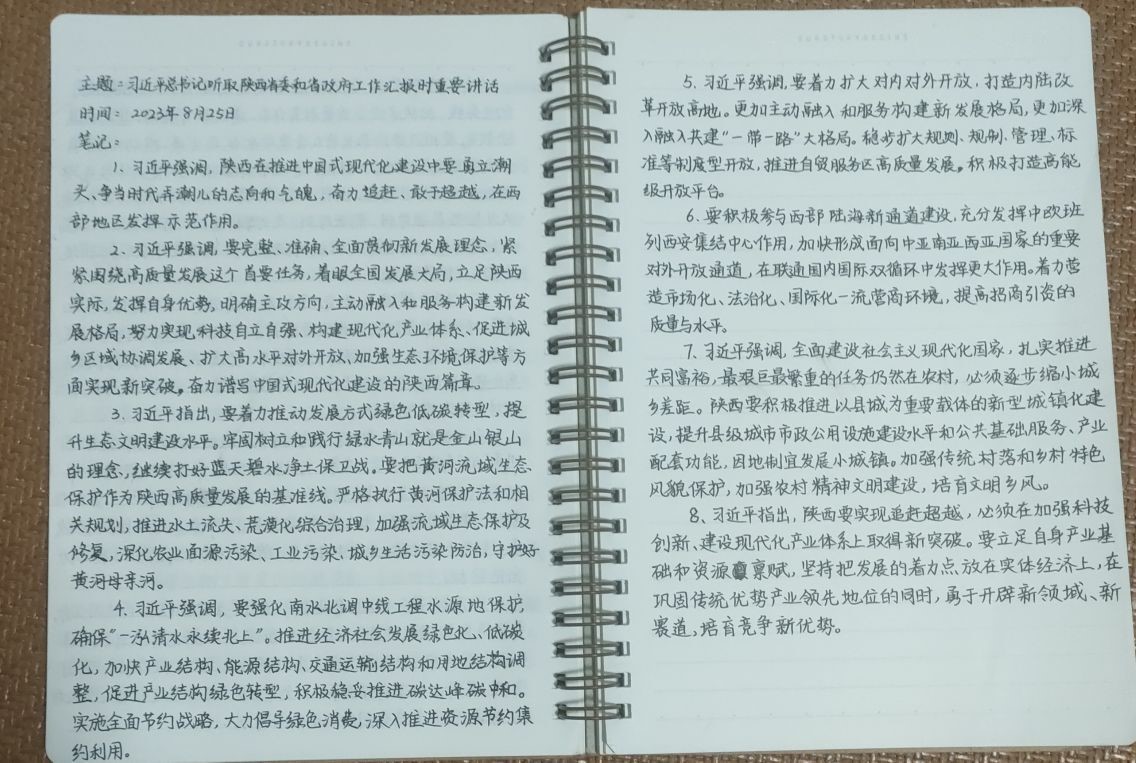 主题：习近平总书记听取陕西省委和省政府工作汇报时重要讲话
时间：2023年8月25日
笔记：
1、习近平强调，陕西在推进中国式现代化建设中要勇立潮
头、争当时代弄潮儿的志向和气魄，奋力追赶、敢于超越，在西
部地区发挥示范作用。
2、习近平强调，要完整、准确、全面贯彻新发展理念，紧
紧围绕高质量发展这个首要任务，着眼全国发展大局，立足陕西
实际，发挥自身优势，明确主攻方向，主动融入和服务构建新发
展格局，努力实现科技自立自强、构建现代化产业体系、促进城
乡区域协调发展、扩大高水平对外开放、加强生态环境保护等方
面实现新突破。奋力谱写中国式现代化建设的陕西篇章。
3、习近平指出，要着力推动发展方式绿色低碳转型，提
升生态文明建设水平。牢固树立和践行绿水青山就是金山银山
的理念，继续打好蓝天碧水净土保卫战。要把黄河流域生态
保护作为陕西高质量发展的基准线。严格执行黄河保护法和相
关规划，推进水土流失、荒漠化综合治理，加强流域生态保护及
修复，深化农业面源污染、工业污染、城乡生活污染防治，守护好
黄河母亲河。
4、习近平强调，要强化南水北调中线工程水源地保护，
确保“一泓清水永续北上”。推进经济社会发展绿色化、低碳
化，加快产业结构、能源结构、交通运输结构和用地结构调
整，促进产业结构绿色转型，积极稳妥推进碳达峰碳中和。
实施全面节约战略，大力倡导绿色消费，深入推进资源节约集
约利用。
5、习近平强调，要着力扩大对内对外开放，打造内陆改
革开放高地。更加主动融入和服务构建新发展格局，更加深
入融入共建“一带一路”大格局。稳步扩大规则、规制、管理、标
准等制度型开放，推进自贸服务区高质量发展。积极打造高能
级开放平台。
6、要积极参与西部陆海新通道建设，充分发挥中欧班
列西安集结中心作用，加快形成面向中亚南亚西亚国家的重要
对外开放通道，在联通国内国际双循环中发挥更大作用。着力营
造市场化、法治化、国际化一流营商环境，提高招商引资的
质量与水平。
7、习近平强调，全面建设社会主义现代化国家，扎实推进
共同富裕，最艰巨最繁重的任务仍然在农村，必须逐步缩小城
乡差距。陕西要积极推进以县城为重要载体的新型城镇化建
设，提升县级城市市政公用设施建设水平和公共基础服务、产业
配套功能，因地制宜发展小城镇。加强传统村落和乡村特色
风貌保护，加强农村精神文明建设，培育文明乡风。
8、习近平指出，陕西要实现追赶超越，必须在加强科技
创新、建设现代化产业体系上取得新突破。要立足自身产业基
础和资源禀赋，坚持把发展的着力点放在实体经济上，在
巩固传统优势产业领先地位的同时，勇于开辟新领域、新
赛道，培育竞争新优势。